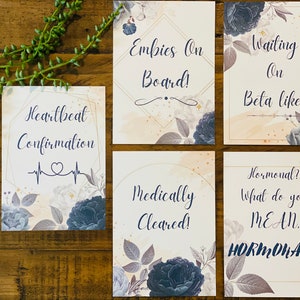 Heartbeat
Confirmation
Embies On
Board!
Waiting
On
Beta like
Medically
Cleared!
Hormonal?
What do yo
MEAN,
HORMONA